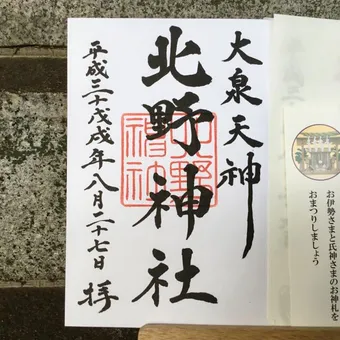 大泉天神
北野神社
平成三十戊戌年八月二十七日 拝
北野神社
お伊勢さまと氏神さまのお神札を
おまつりしましょう